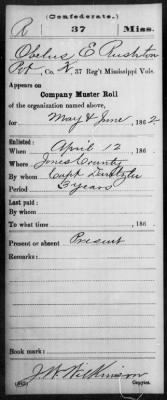 (Confederate.)
R 37 Miss.
Obelus E Rushton
Pvt, Co. K, 37 Reg't Mississippi Vols.
Appears on
Company Muster Roll
of the organization named above,
for May & June, 1862
Enlisted:
When April 12, 186 .
Where Jones County
By whom Capt
Period 3 years
Last paid:
By whom
To what time , 186 .
Present or absent Present
Remarks:
Book mark:
J. W. Wilkinson
Copyist.